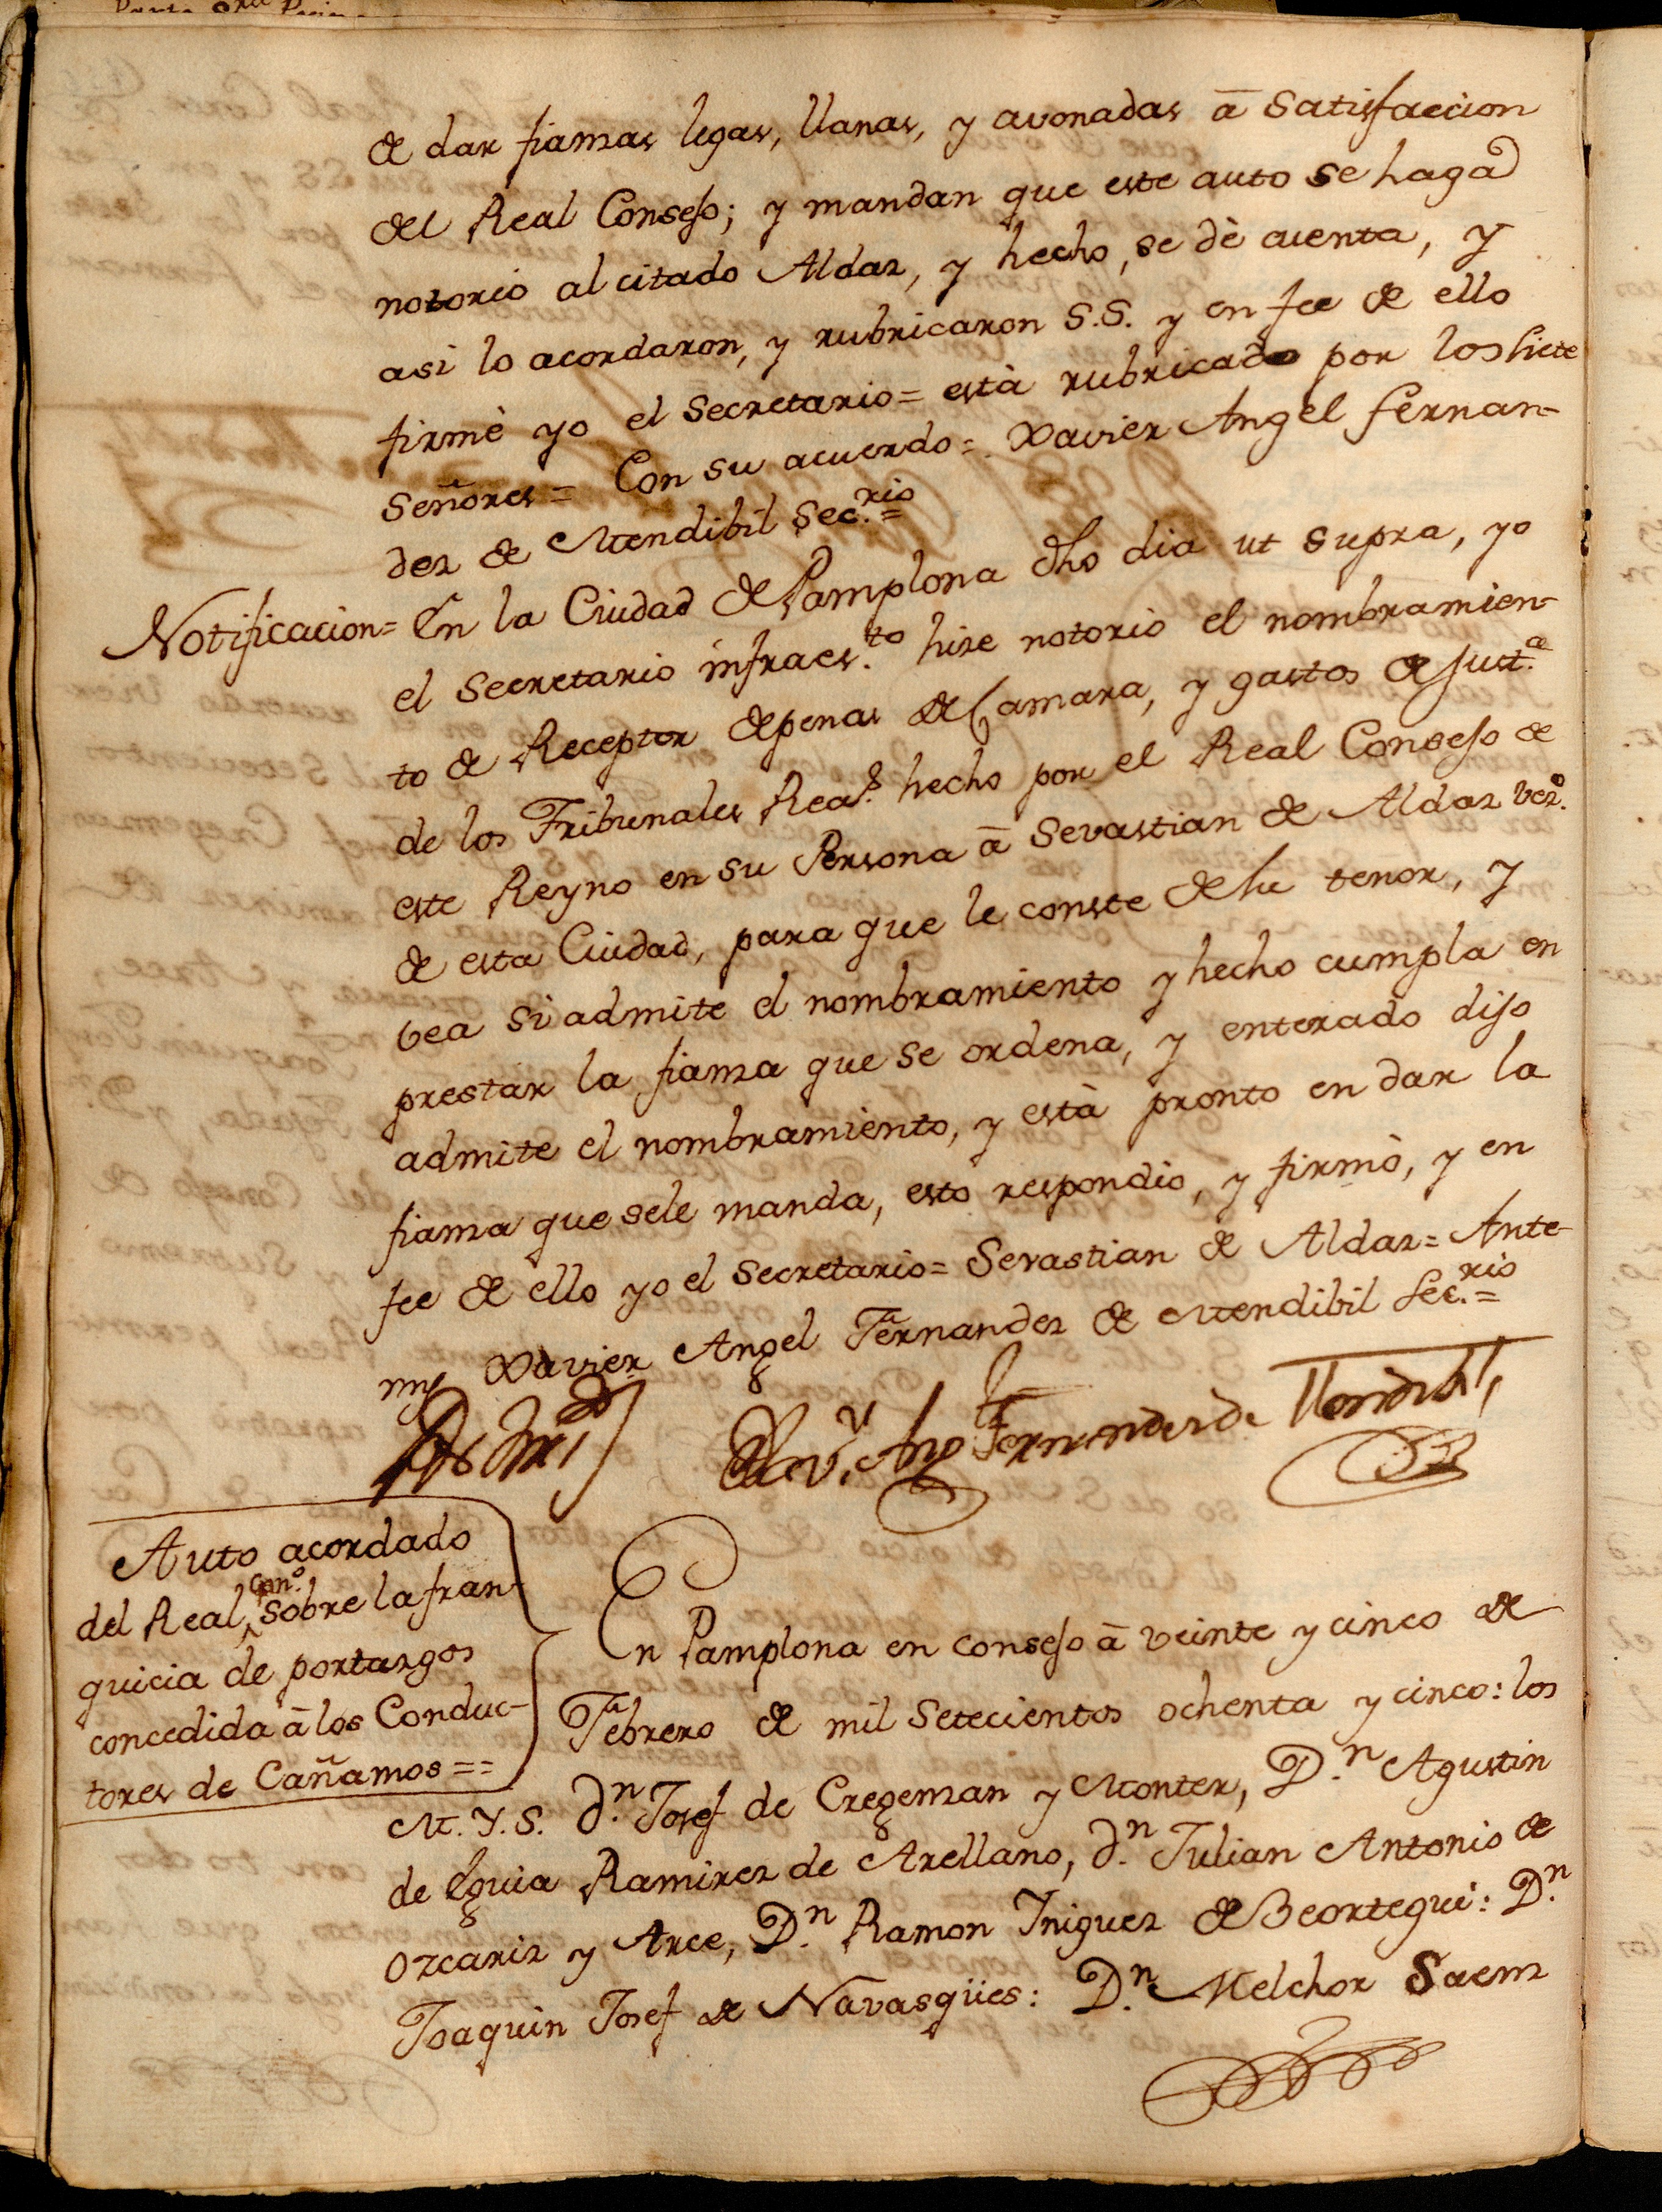 de dar fianzas legas, llanas, y avonadas â Satisfaccion
del Real Consejo; y mandan que este auto se haga
notorio al citado Aldaz, y hecho, se dè cuenta, y
asi lo acordaron, y rubricaron S.S. y en fee de ello
firmè yo el Secretario= està rubricado por los siete
Señores= Con su acuerdo= Xavier Angel Fernan-
dez de Mendibil Sec.rio=
Notificacion= En la Ciudad de Pamplona dho dia ut supra, yo
el Secretario infraes.to hize notorio el nombramien-
to de Receptor de penas de Camara, y gastos de Just.a
de los Tribunales Rea.s hecho por el Real Consejo de
este Reyno en su Persona â Sevastian de Aldaz vez.o
de esta Ciudad, para que le conste de su tenor, y
vea si admite el nombramiento y hecho cumpla en
prestar la fianza que se ordena, y enterado dijo
admite el nombramiento, y està pronto en dar la
fianza que sele manda, esto respondio, y firmò, y en
fee de ello yo el Secretario= Sevastian de Aldaz= Ante
my Xavier Angel Fernandez de Mendibil Sec.rio=
Xav.r Ang Fernandez de Mendibil
Auto acordado
del Real Con.o sobre la fran-
quicia de portazgos
concedida â los Conduc-
tores de Cañamos==
En Pamplona en consejo â veinte y cinco de
Febrero de mil Setecientos ochenta y cinco: los
M.Y.S. d.n Josef de Cregenzan y Monter, D.n Agustin
de Eguia Ramirez de Arellano, d.n Julian Antonio de
Ozcariz y Arce, D.n Ramon Iñiguez de Beortegui: D.n
Joaquin Josef de Navasqües: D.n Melchor Saenz